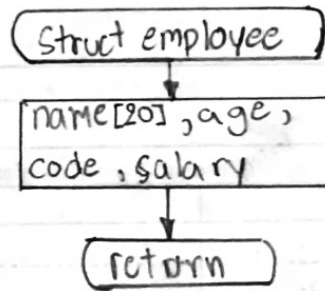 struct employee
name[20], age,
code, salary
return